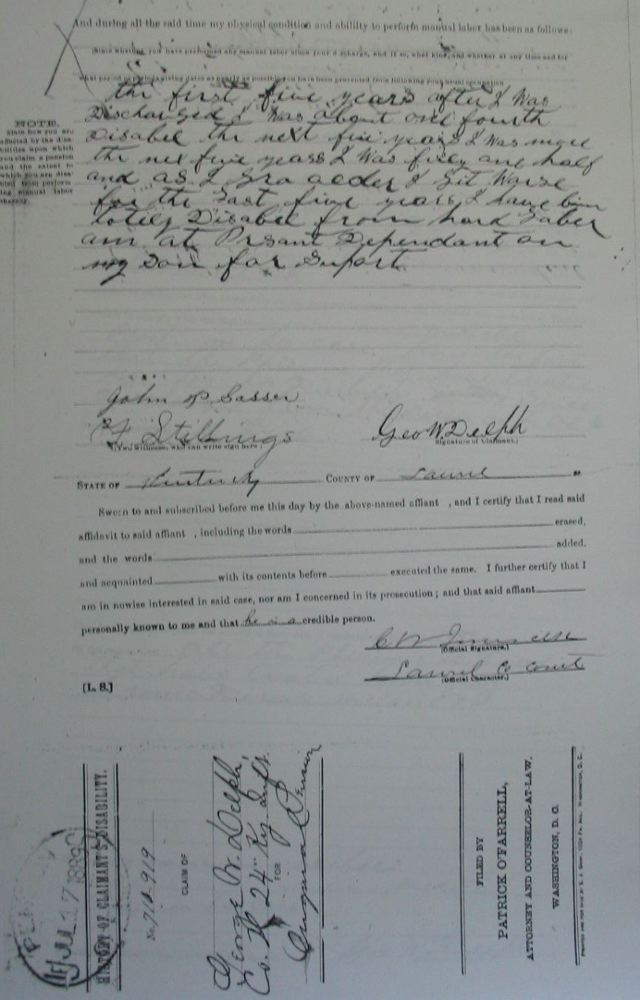 And during all the said time my physical condition and ability to perform manual labor has been as follows:
(State whether you have performed any manual labor since your discharge, and if so, what kind, and whether at any time and for
what period you have been prevented from following your usual occupation
NOTE.
State how you are
affected by the disa-
bilities upon which
you claim a pension
and the extent to
which you are disa-
bled from perform-
ing manual labor
the first five years after I Was
Discharged I Was about one fourth
Disabel the next five years I Was more
the nex five years I Was fuley one half
and as I Gro older I Git Worse
for the Last five years I have bin
totely Disabel from hard Laber
am at Presant Dependant on
my Son for Suport
John P Sasser
Stillings
(Two witnesses who can write sign here.)
Geo W. Delph
(Signature of Claimant.)
STATE OF Kentucky COUNTY OF Laurel
Sworn to and subscribed before me this day by the above-named affiant , and I certify that I read said
affidavit to said affiant , including the words erased,
and the words added,
and acquainted with its contents before executed the same. I further certify that I
am in nowise interested in said case, nor am I concerned in its prosecution; and that said affiant
personally known to me and that he is a credible person.
C W
(Official Signature.)
Laurel Co Court
(Official Character.)
[L. S.]
HISTORY OF CLAIMANT'S DISABILITY.
CLAIM OF
George W. Delph
Co. 24" Ky. Infty
FOR
Pension
FILED BY
PATRICK O'FARRELL,
ATTORNEY AND COUNSELOR-AT-LAW.
WASHINGTON, D. C.